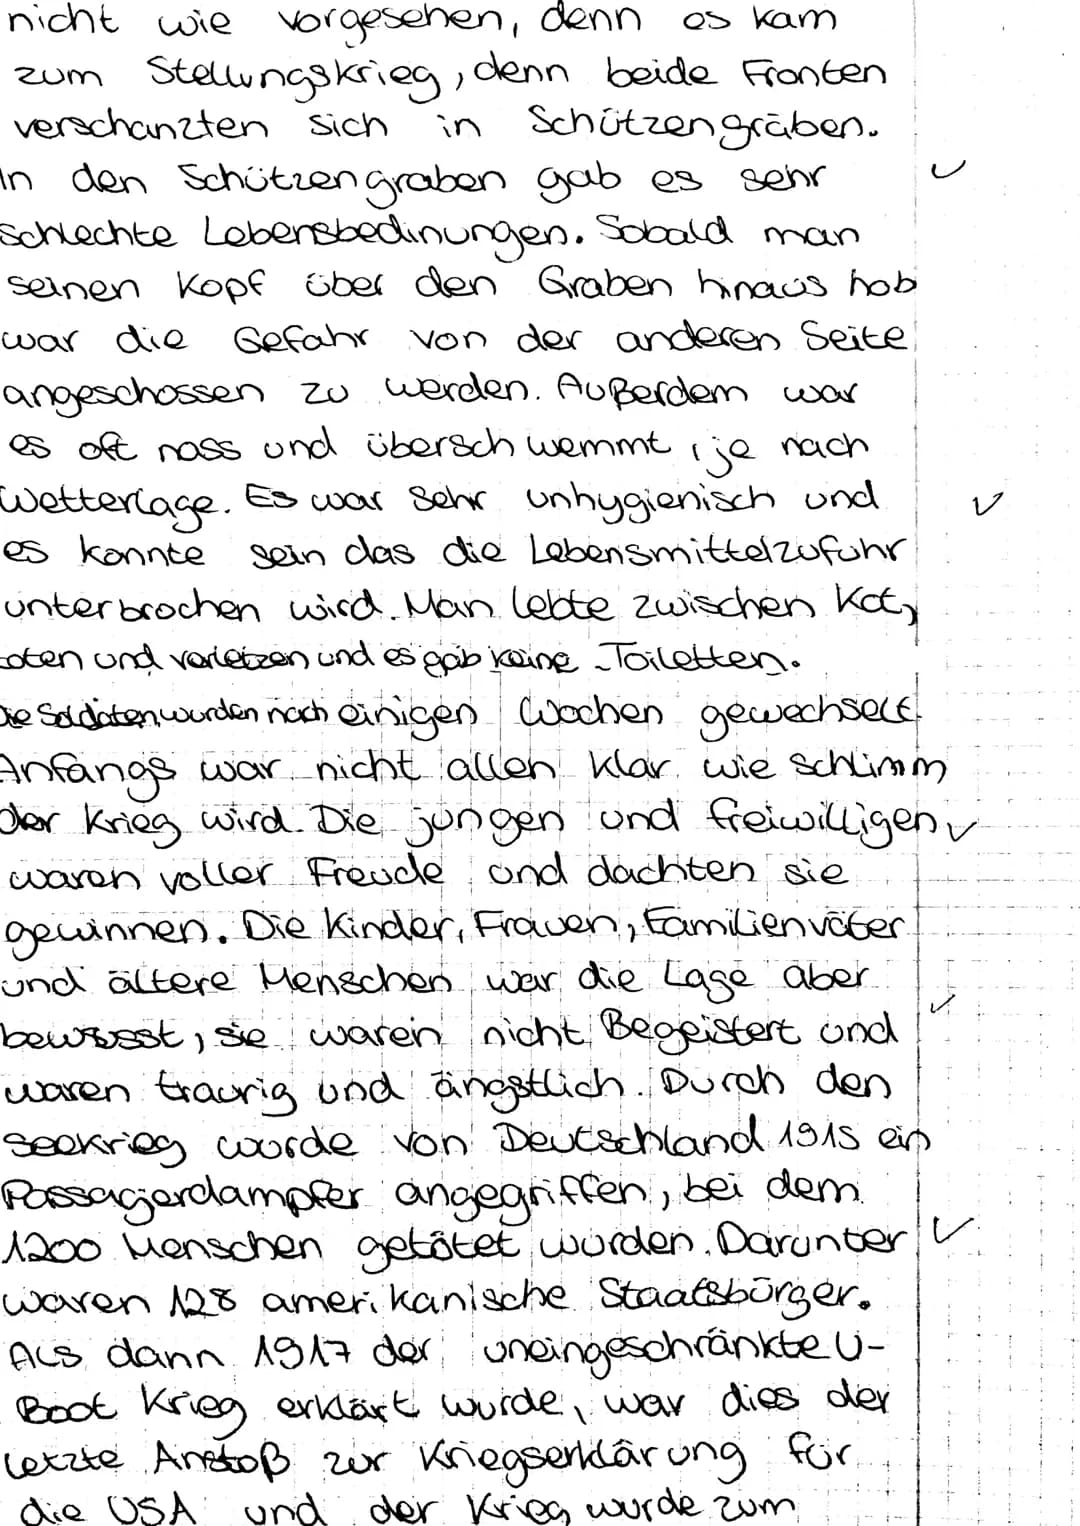 nicht wie vorgesehen, denn es kam
zum Stellungskrieg, denn beide Fronten
verschanzten sich in Schützengräben.
In den Schützengraben gab es sehr
schlechte Lebensbedinungen. Sobald man
seinen Kopf über den Graben hinaus hob
war die Gefahr von der anderen Seite
angeschossen zu werden. Außerdem war
es oft nass und überschwemmt, je nach
Wetterlage. Es war sehr unhygienisch und
es konnte sein das die Lebensmittelzufuhr
unterbrochen wird. Man lebte zwischen Kot,
toten und verletzen und es gab keine Toiletten.
Die Soldaten wurden nach einigen Wochen gewechselt.
Anfangs war nicht allen klar wie schlimm
der Krieg wird. Die jungen und freiwilligen
waren voller Freude und dachten sie
gewinnen. Die Kinder, Frauen, Familienväter
und ältere Menschen war die Lage aber
bewusst, sie waren nicht Begeistert und
waren traurig und ängstlich. Durch den
Seekrieg wurde von Deutschland 1915 ein
Passagierdampfer angegriffen, bei dem
1200 Menschen getötet wurden. Darunter
waren 128 amerikanische Staatsbürger.
Als dann 1917 der uneingeschränkte U-
Boot Krieg erklärt wurde, war dies der
letzte Anstoß zur Kriegserklärung für
die USA und der Krieg wurde zum